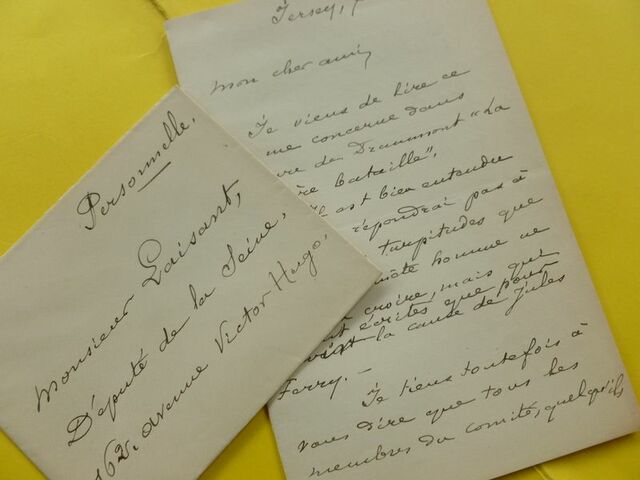 Personnelle,
Monsieur Laisant,
Député de la Seine,
162, avenue Victor Hugo,
Jersey,
Mon cher ami,
Je viens de lire ce
me concerne dans
de Draumont "La
bataille",
est bien entendu
répondrai pas à
turpitudes que
homme ne
croire, mais qui
écrites que pour
la cause de Jules
Ferry. —
Je tiens toutefois à
vous dire que tous les
membres du comité, quelqu'ils